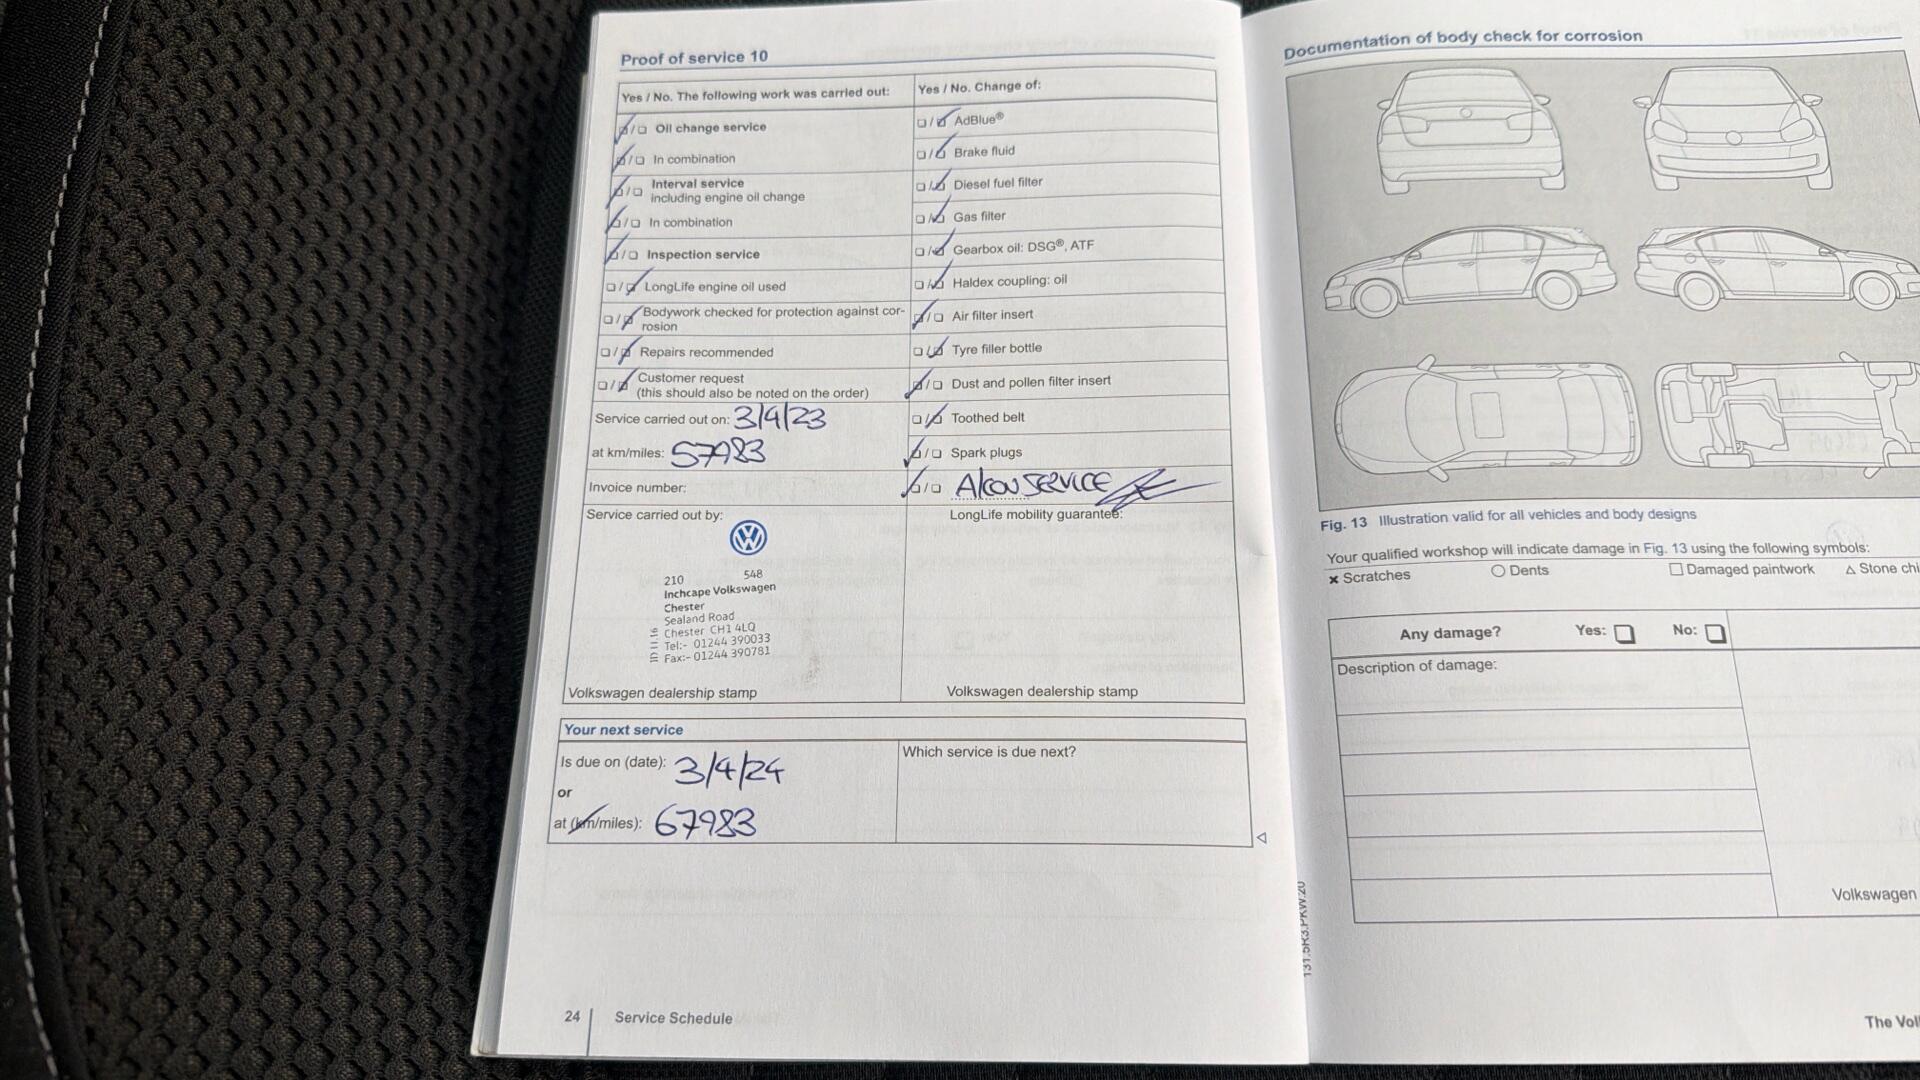 Proof of service 10
Yes / No. The following work was carried out:
Oil change service
In combination
Interval service
including engine oil change
In combination
Inspection service
LongLife engine oil used
Bodywork checked for protection against cor-
rosion
Repairs recommended
Customer request
(this should also be noted on the order)
Service carried out on: 3/4/23
at km/miles: 57983
Invoice number:
Yes / No. Change of:
AdBlue®
Brake fluid
Diesel fuel filter
Gas filter
Gearbox oil: DSG®, ATF
Haldex coupling: oil
Air filter insert
Tyre filler bottle
Dust and pollen filter insert
Toothed belt
Spark plugs
AIRCON SERVICE
Service carried out by:
210 548
Inchcape Volkswagen
Chester
Sealand Road
Chester CH1 4LQ
Tel:- 01244 390033
Fax:- 01244 390781
ID 11.16
Volkswagen dealership stamp
LongLife mobility guarantee:
Volkswagen dealership stamp
Your next service
Is due on (date): 3/4/24
or
at (km/miles): 67983
Which service is due next?
24 Service Schedule
Documentation of body check for corrosion
Fig. 13 Illustration valid for all vehicles and body designs
Your qualified workshop will indicate damage in Fig. 13 using the following symbols:
× Scratches ○ Dents □ Damaged paintwork △ Stone chi
Any damage? Yes: No:
Description of damage:
Volkswagen
131.5R3.PKW.20
The Vol